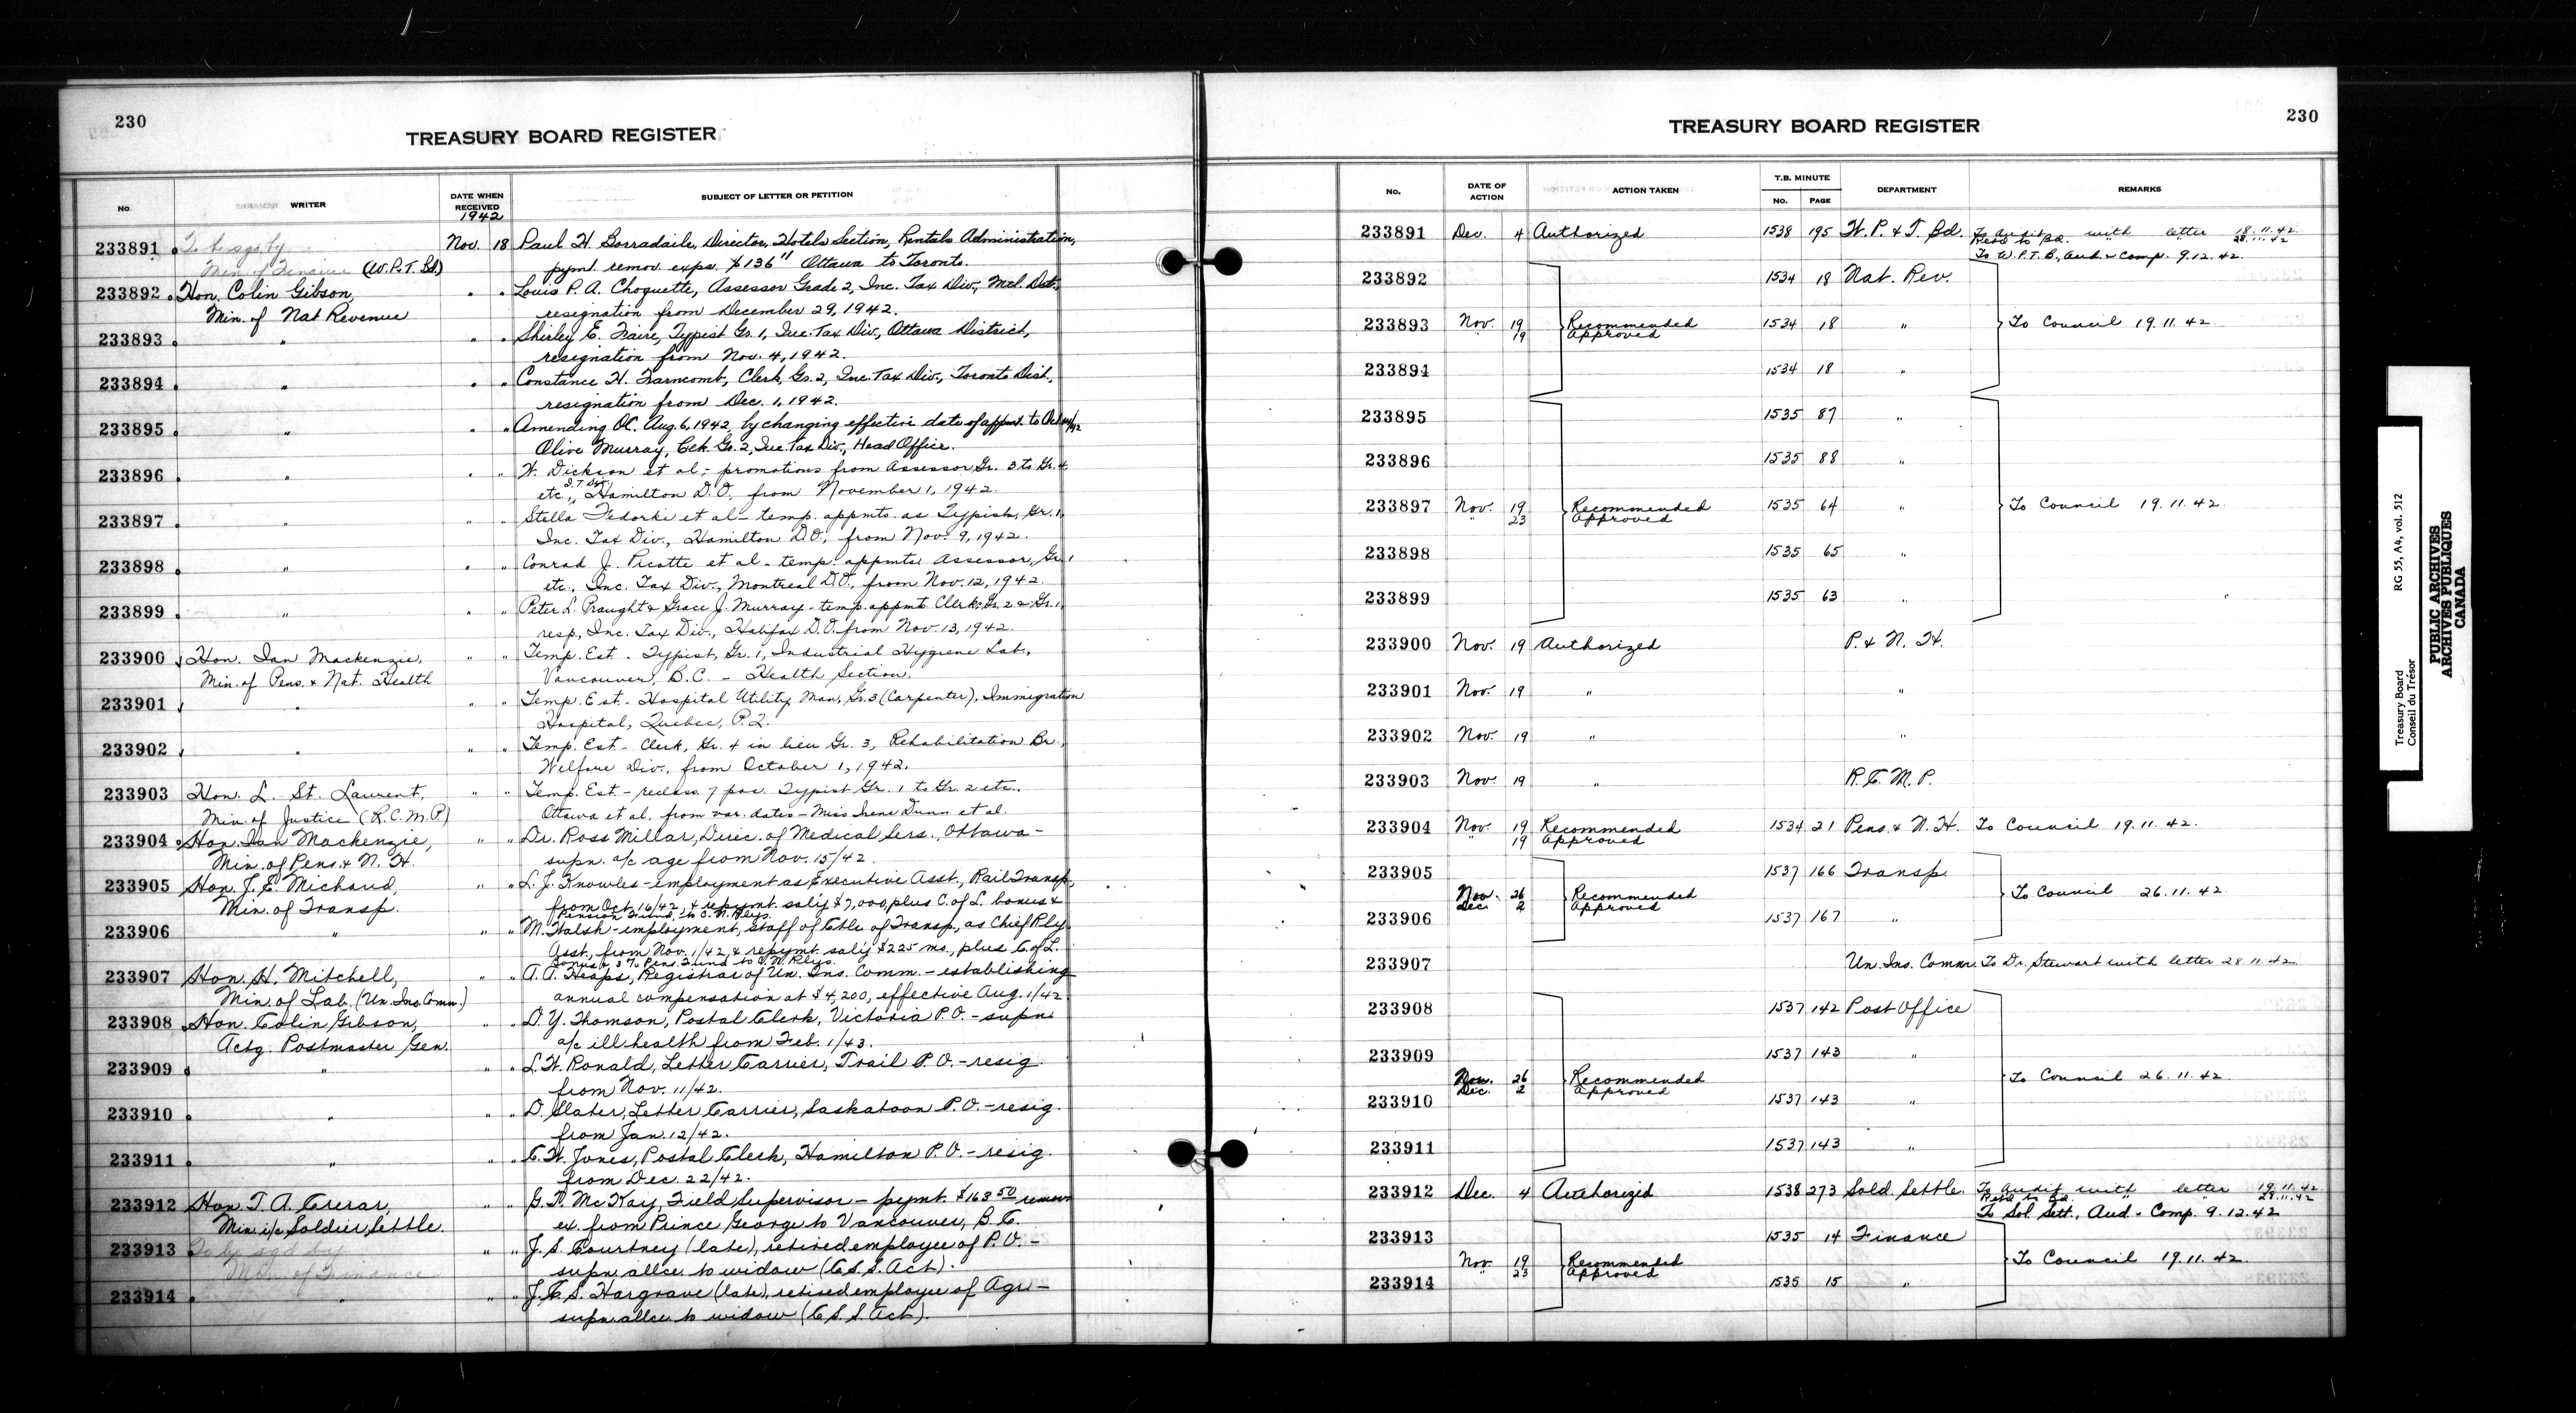 230
TREASURY BOARD REGISTER
No. WRITER DATE WHEN RECEIVED SUBJECT OF LETTER OR PETITION
1942
233891 To be sgd by Nov. 18 Paul H. Borradaile, Director, Hotels Section, Rentals Administration,
Min. of Finance (W.P.T. Bd) pymt. remov. exps. $136 11 Ottawa to Toronto.
233892 Hon. Colin Gibson, " " Louis P. A. Choquette, Assessor Grade 2, Inc. Tax Div., Mtl. Dist.,
Min. of Nat Revenue resignation from December 29, 1942.
233893 " " " Shirley E. Faire, Typist Gr. 1, Inc. Tax Div., Ottawa District,
resignation from Nov. 4, 1942.
233894 " " " Constance H. Farncomb, Clerk, Gr. 2, Inc. Tax Div., Toronto Dist.,
resignation from Dec. 1, 1942.
233895 " " " Amending OC. Aug. 6, 1942, by changing effective date of appmt. to
Olive Murray, Clk. Gr. 2, Inc. Tax Div., Head Office.
233896 " " " W. Dickson et al; - promotions from Assessor Gr. 3 to Gr. 4
etc., I.T. Div., Hamilton D.O., from November 1, 1942.
233897 " " " Stella Fedorki et al - temp. appmts. as Typists, Gr. 1,
Inc. Tax Div., Hamilton D.O., from Nov. 9, 1942.
233898 " " " Conrad J. Picotte et al - temp. appmts. Assessor, Gr. 1
etc., Inc. Tax Div., Montreal D.O., from Nov. 12, 1942.
233899 " " " Peter L. Praught & Grace J. Murray - temp. appmt. Clerk, Gr. 2 & Gr. 1,
resp., Inc. Tax Div., Halifax D.O. from Nov. 13, 1942.
233900 Hon. Ian Mackenzie, " " Temp. Est. - Typist, Gr. 1, Industrial Hygiene Lab.,
Min. of Pens. & Nat. Health Vancouver, B.C. - Health Section.
233901 " " " Temp. Est. - Hospital Utility Man, Gr. 3 (Carpenter), Immigration
Hospital, Quebec, P.Q.
233902 " " " Temp. Est. - Clerk, Gr. 4 in lieu Gr. 3, Rehabilitation Br.,
Welfare Div., from October 1, 1942.
233903 Hon. L. St. Laurent, " " Temp. Est. - reclass. 7 pos. Typist Gr. 1 to Gr. 2 etc.,
Min. of Justice (R.C.M.P.) Ottawa et al. from var. dates - Miss Irene Dunn et al.
233904 Hon. Ian Mackenzie, " " Dr. Ross Millar, Direc. of Medical Sers., Ottawa -
Min. of Pens. & N. H. supn. a/c age from Nov. 15/42.
233905 Hon. J. E. Michaud, " " L. J. Knowles - employment as Executive Asst., Rail Transp.,
Min. of Transp. from Oct. 16/42, & repymt. sal'y $7,000, plus C. of L. bonus &
Pension Fund, to C. N. Rlys.
233906 " " " M. Walsh - employment, staff of Ctlr. of Transp., as Chief Rly.
Asst., from Nov. 1/42, & repymt. sal'y $225 mo., plus C. of L.
Bonus & 3% Pens. Fund to C. N. Rlys.
233907 Hon. H. Mitchell, " " A. A. Heaps, Registrar of Un. Ins. Comm. - establishing
Min. of Lab. (Un. Ins. Comm.) annual compensation at $4,200, effective Aug. 1/42
233908 Hon. Colin Gibson, " " D. Y. Thomson, Postal Clerk, Victoria P.O. - supn.
Actg. Postmaster Gen. a/c ill health from Feb. 1/43.
233909 " " " L. W. Ronald, Letter Carrier, Trail P.O. - resig.
from Nov. 11/42.
233910 " " " D. Slater, Letter Carrier, Saskatoon P.O. - resig.
from Jan. 12/42.
233911 " " " C. W. Jones, Postal Clerk, Hamilton P.O. - resig.
from Dec. 22/42.
233912 Hon. T. A. Crerar, " " G. D. McKay, Field Supervisor - pymt. $163 50 remov.
Min. i/c Soldier Settle. ex. from Prince George to Vancouver, B.C.
233913 To be sgd by " " J. S. Courtney (late), retired employee of P.O. -
Min. of Finance supn. allce. to widow (C.S.S. Act).
233914 " " " J. C. S. Hargrave (late), retired employee of Agri -
supn. allce. to widow (C.S.S. Act).
230
TREASURY BOARD REGISTER
No. DATE OF ACTION ACTION TAKEN T.B. MINUTE No. PAGE DEPARTMENT REMARKS
233891 Dec. 4 Authorized 1538 195 W. P. & T. Bd. To Audit with letter 18.11.42
Retd to Bd. " " 28.11.42
To W.P.T.B., Aud. & Comp. 9.12.42.
233892 1534 18 Nat. Rev.
233893 Nov. 19 Recommended 1534 18 " To Council 19.11.42.
" 19 Approved
233894 1534 18 "
233895 1535 87 "
233896 1535 88 "
233897 Nov. 19 Recommended 1535 64 " To Council 19.11.42.
" 23 Approved
233898 1535 65 "
233899 1535 63 "
233900 Nov. 19 Authorized P. & N. H.
233901 Nov. 19 " "
233902 Nov. 19 " "
233903 Nov. 19 " R. C. M. P.
233904 Nov. 19 Recommended 1534 21 Pens. & N. H. To Council 19.11.42.
" 19 Approved
233905 1537 166 Transp.
Nov. 26 Recommended To Council 26.11.42
Dec. 2 Approved
233906 1537 167 "
233907 Un. Ins. Comm. To Dr. Stewart with letter 28.11.42
233908 1537 142 Post Office
233909 1537 143 "
Nov. 26 Recommended To Council 26.11.42
Dec. 2 Approved
233910 1537 143 "
233911 1537 143 "
233912 Dec. 4 Authorized 1538 273 Sold. Settle. To Audit with letter 19.11.42
Retd to Bd. " " 28.11.42
To Sol. Sett., Aud. & Comp. 9.12.42
233913 1535 14 Finance
Nov. 19 Recommended To Council 19.11.42.
" 23 Approved
233914 1535 15 "
Treasury Board RG 55, A4, vol. 512
Conseil du Trésor
PUBLIC ARCHIVES
ARCHIVES PUBLIQUES
CANADA